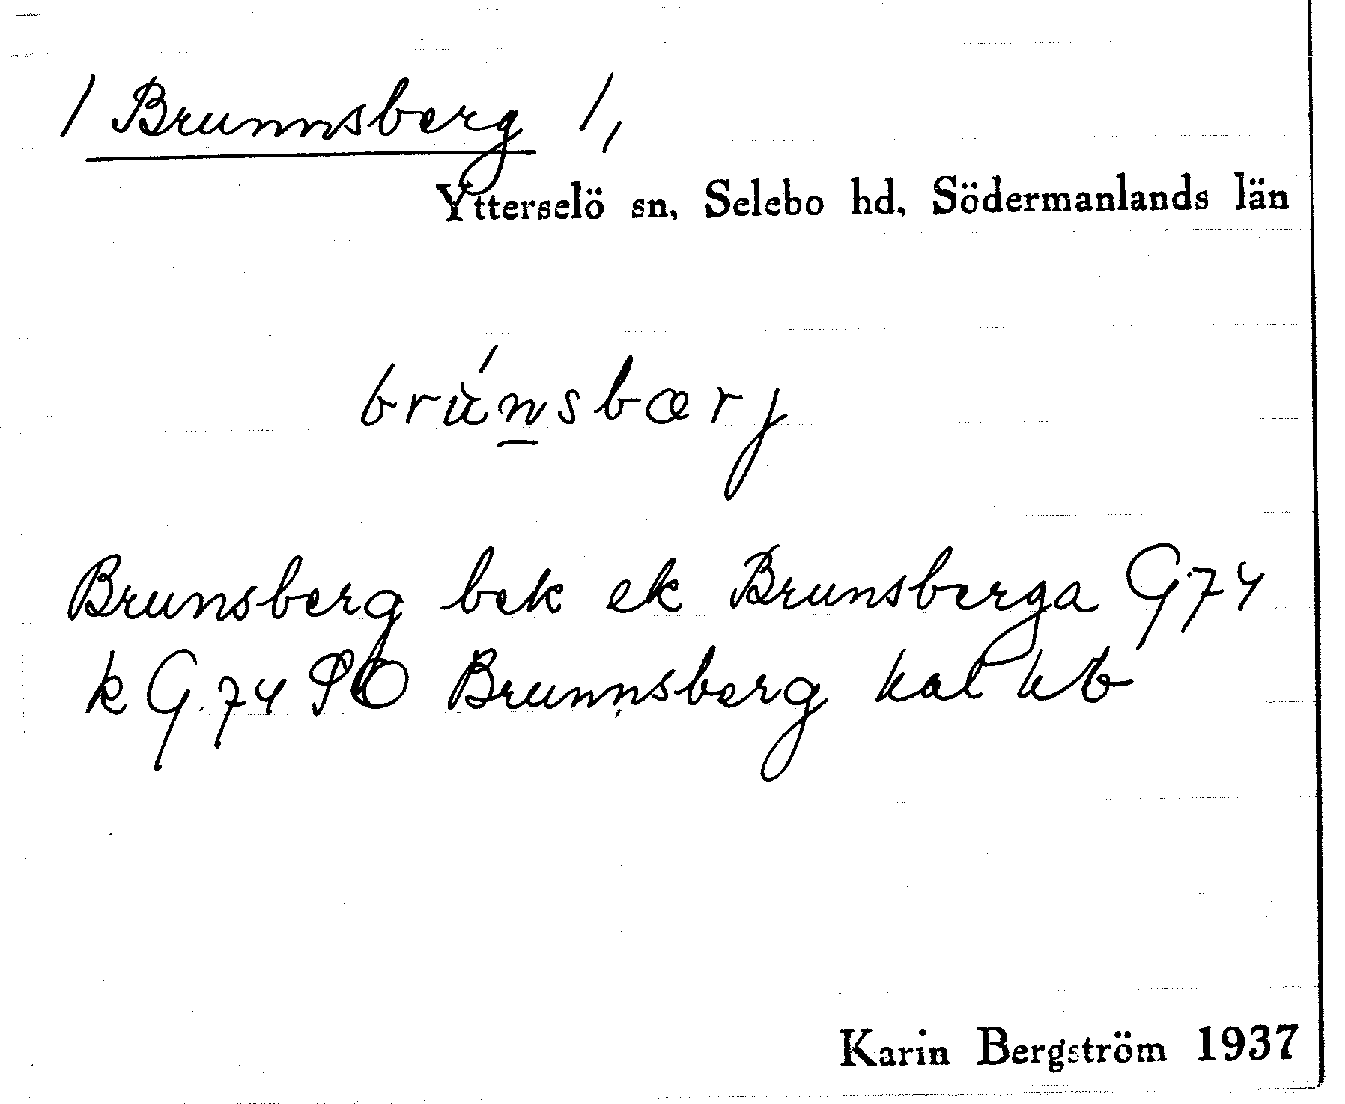 / Brunnsberg /,
Ytterselö sn, Selebo hd, Södermanlands län
brúnsbærj
Brunsberg bek ek Brunsberga G74
k G.74 SO Brunnsberg kat kb
Karin Bergström 1937